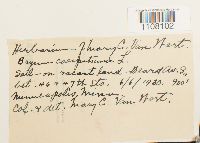 1108102
Herbarium - Mary C. Van Wert.
Bryum caespiticium L.
Soil - on vacant land. Beard Av. S,
bet. 46 & 47th Sts. 6/6/1930. 900'
Minneapolis, Minn.
Col. & det. Mary C. Van Wert.